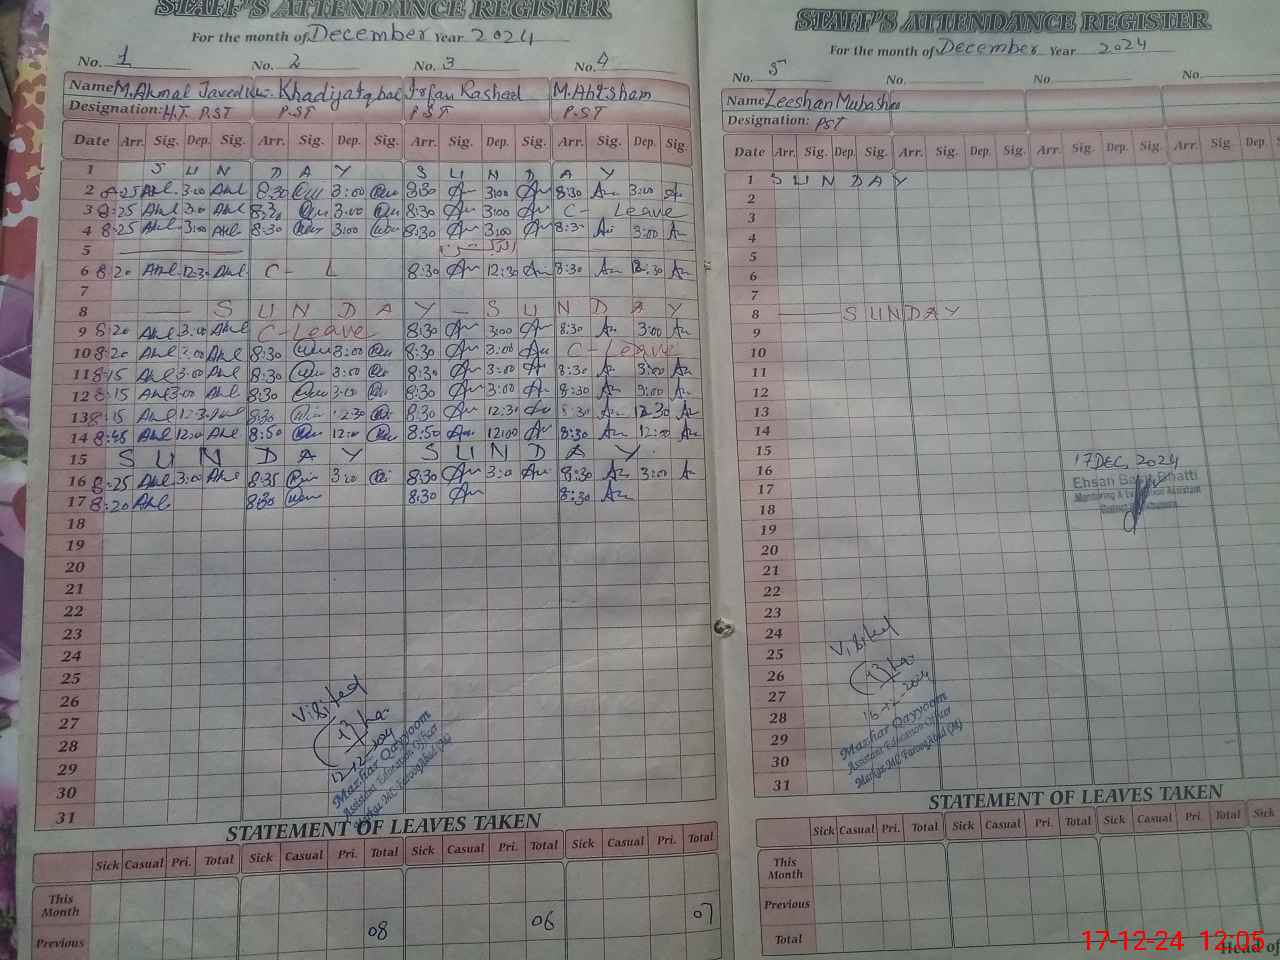 STAFF'S ATTENDANCE REGISTER
For the month of December Year 2024
No. 1 No. 2 No. 3 No. 4
Name M. Akmal Javed Khadija Iqbal Irfan Rasheed M. Ahtsham
Designation: H.T. P.ST P.ST P.ST P.ST
Date Arr. Sig. Dep. Sig. Arr. Sig. Dep. Sig. Arr. Sig. Dep. Sig. Arr. Sig. Dep. Sig.
1 S U N D A Y S U N D A Y
2 8:25 3:00 8:30 3:00 8:30 3:00 8:30 3:00
3 8:25 3:00 8:30 3:00 8:30 3:00 C- Leave
4 8:25 3:00 8:30 3:00 8:30 3:00 8:30 3:00
5
6 8:20 12:30 C- L 8:30 12:30 8:30 12:30
7
8 S U N D A Y - S U N D A Y
9 8:20 3:00 C-Leave 8:30 3:00 8:30 3:00
10 8:20 3:00 8:30 3:00 8:30 3:00 C-Leave
11 8:15 3:00 8:30 3:00 8:30 3:00 8:30 3:00
12 8:15 3:00 8:30 3:00 8:30 3:00 8:30 3:00
13 8:15 12:30 8:30 12:30 8:30 12:30 8:30 12:30
14 8:45 12:00 8:50 12:00 8:50 12:00 8:30 12:00
15 S U N D A Y S U N D A Y
16 8:25 3:00 8:35 3:00 8:30 3:00 8:30 3:00
17 8:20 8:30 8:30 8:30
18
19
20
21
22
23
24
25
26
27
28
29
30
31
Visited
12-12-2024
Mazhar Qayyoom
Assistant Education Officer
STATEMENT OF LEAVES TAKEN
Sick Casual Pri. Total Sick Casual Pri. Total Sick Casual Pri. Total Sick Casual Pri. Total
This Month
Previous 08 06 07
STAFF'S ATTENDANCE REGISTER
For the month of December Year 2024
No. 5 No. No. No.
Name Zeeshan Mubashar
Designation: PST
Date Arr. Sig. Dep. Sig. Arr. Sig. Dep. Sig. Arr. Sig. Dep. Sig. Arr. Sig. Dep
1 S U N D A Y
2
3
4
5
6
7
8 SUNDAY
9
10
11
12
13
14
15
16
17
18
19
20
21
22
23
24
25
26
27
28
29
30
31
17 DEC, 2024
Ehsan Bhatti
Monitoring & Evaluation Assistant
Visited
16-12-2024
Mazhar Qayyoom
Assistant Education Officer
STATEMENT OF LEAVES TAKEN
Sick Casual Pri. Total Sick Casual Pri. Total Sick Casual Pri. Total Sick
This Month
Previous
Total
Head of
17-12-24 12:05